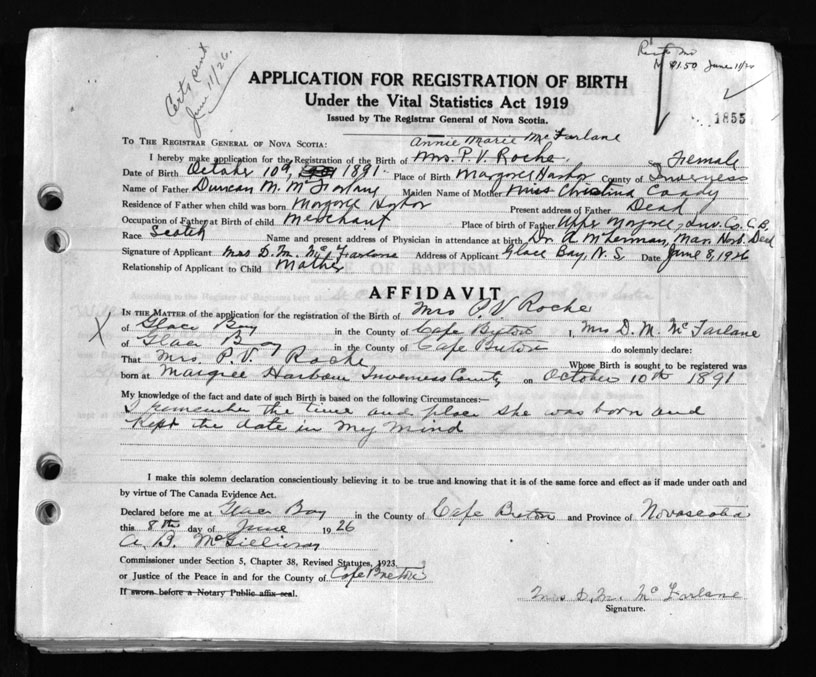 Certs sent
June 11/26.
$1.50 June 11/26
1855
APPLICATION FOR REGISTRATION OF BIRTH
Under the Vital Statistics Act 1919
Issued by The Registrar General of Nova Scotia.
Annie Marie McFarlane
TO THE REGISTRAR GENERAL OF NOVA SCOTIA:
I hereby make application for the Registration of the Birth of Mrs. P. V. Roche. Female
Date of Birth October 10 1891. Place of Birth Margaree Harbor County of Inverness
Name of Father Duncan M. McFarlane Maiden Name of Mother Miss Christina Coady
Residence of Father when child was born Margaree Harbor Present address of Father Dead
Occupation of Father at Birth of child Merchant Place of birth of Father Upper Margaree, Inv. Co. C.B.
Race Scotch Name and present address of Physician in attendance at birth Dr. Mar. Harb. Dead
Signature of Applicant Mrs D. M. McFarlane Address of Applicant Glace Bay, N.S. Date June 8, 1926
Relationship of Applicant to Child Mother
AFFIDAVIT
IN THE MATTER of the application for the registration of the Birth of Mrs P. V. Roche
X of Glace Bay in the County of Cape Breton I, Mrs D. M. McFarlane
of Glace Bay in the County of Cape Breton do solemnly declare:
That Mrs. P. V. Roche Whose Birth is sought to be registered was
born at Margree Harbour Inverness County on October 10th 1891
My knowledge of the fact and date of such Birth is based on the following Circumstances:—
I remember the time and place she was born and
Kept the date in my mind
I make this solemn declaration conscientiously believing it to be true and knowing that it is of the same force and effect as if made under oath and
by virtue of The Canada Evidence Act.
Declared before me at Glace Bay in the County of Cape Breton and Province of Novascotia
this 8th day of June 1926
A. B. McGillivray
Commissioner under Section 5, Chapter 38, Revised Statutes, 1923.
or Justice of the Peace in and for the County of Cape Breton
If sworn before a Notary Public affix seal.
Mrs D. M. McFarlane
Signature.